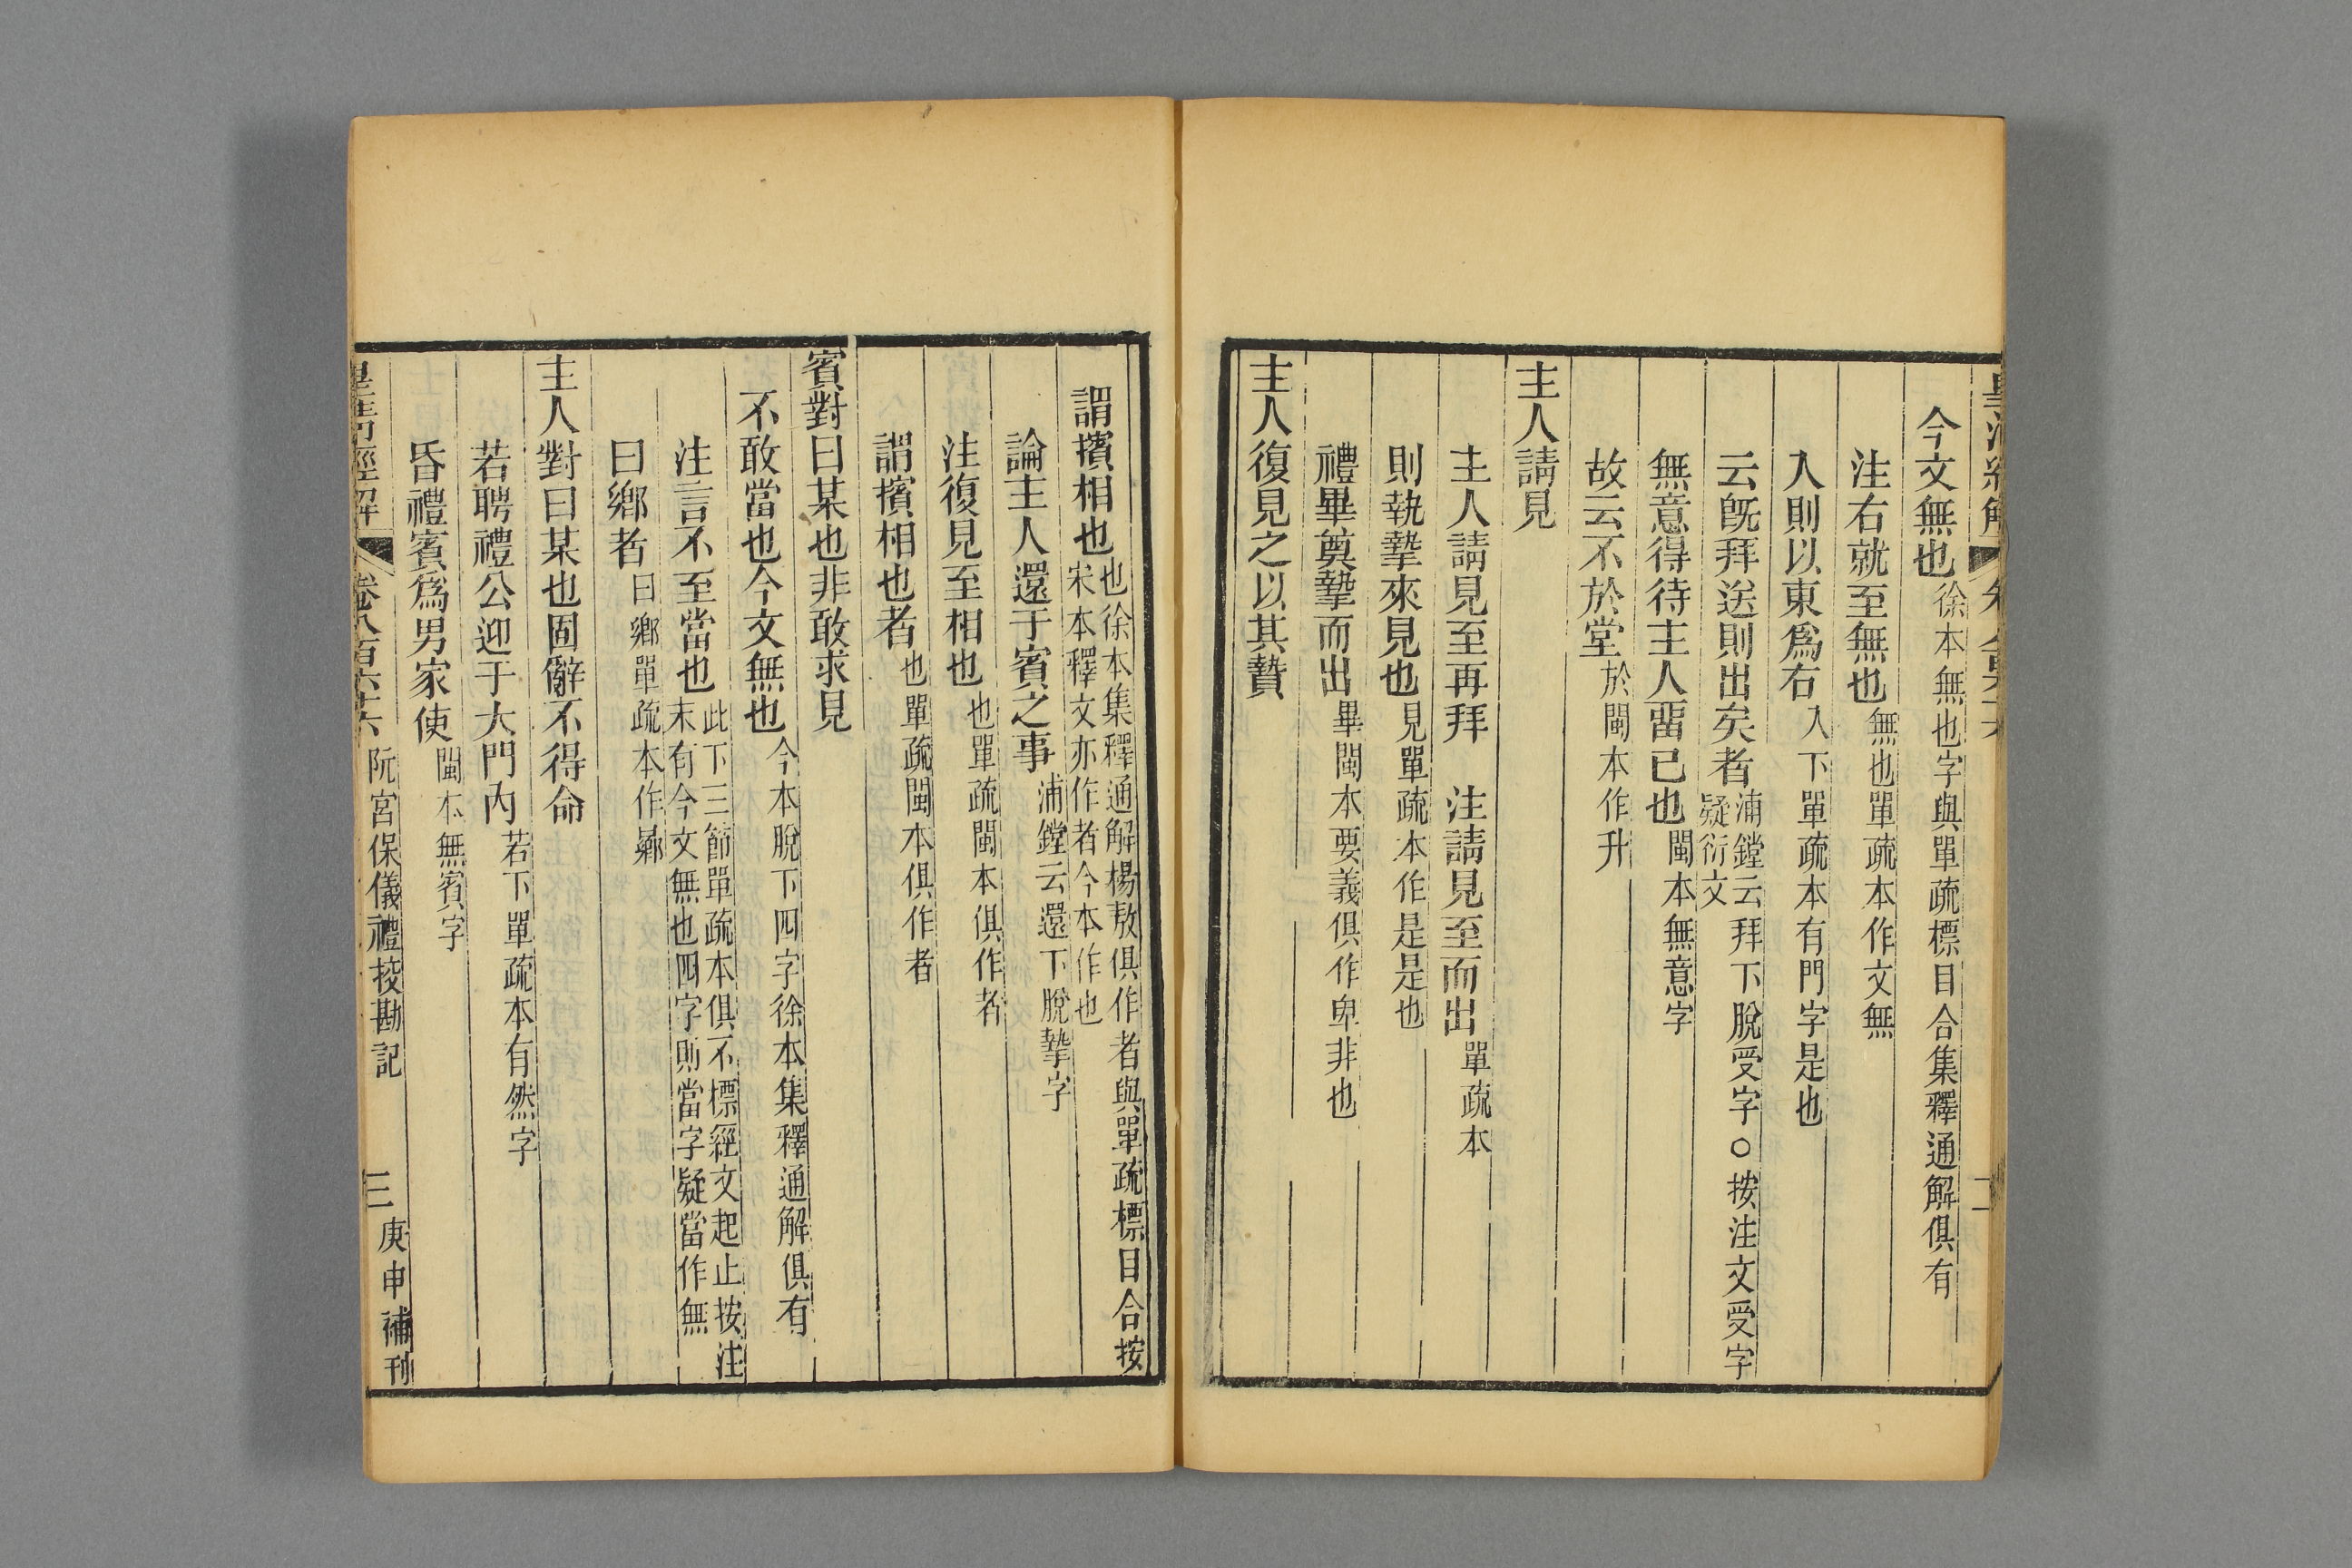 今文無也徐本無也字與單疏標目合集釋通解俱有
注右就至無也無也單疏本作文無
入則以東爲右入下單疏本有門字是也
云旣拜送則出矣者浦鏜云拜下脫受字○按注文受字疑衍文
無意得待主人畱已也閩本無意字
故云不於堂於閩本作升
主人請見
主人請見至再拜　注請見至而出單疏本
則執摯來見也見單疏本作是是也
禮畢奠摯而出畢閩本要義俱作卑非也
主人復見之以其贄
謂擯相也也徐本集釋通解楊敖俱作者與單疏標目合按宋本釋文亦作者今本作也
論主人還于賓之事浦鏜云還下脫摯字
注復見至相也也單疏閩本俱作者
謂擯相也者也單疏閩本俱作者
賓對曰某也非敢求見
不敢當也今文無也今本脫下四字徐本集釋通解俱有
注言不至當也此下三節單疏本俱不標經文起止按注末有今文無也四字則當字疑當作無
曰鄉者曰鄉單疏本作曏
主人對曰某也固辭不得命
若聘禮公迎于大門內若下單疏本有然字
昏禮賓爲男家使閩本無賓字
皇淸經解　卷八百六十六　阮宮保儀禮挍勘記　三　庚申補刊